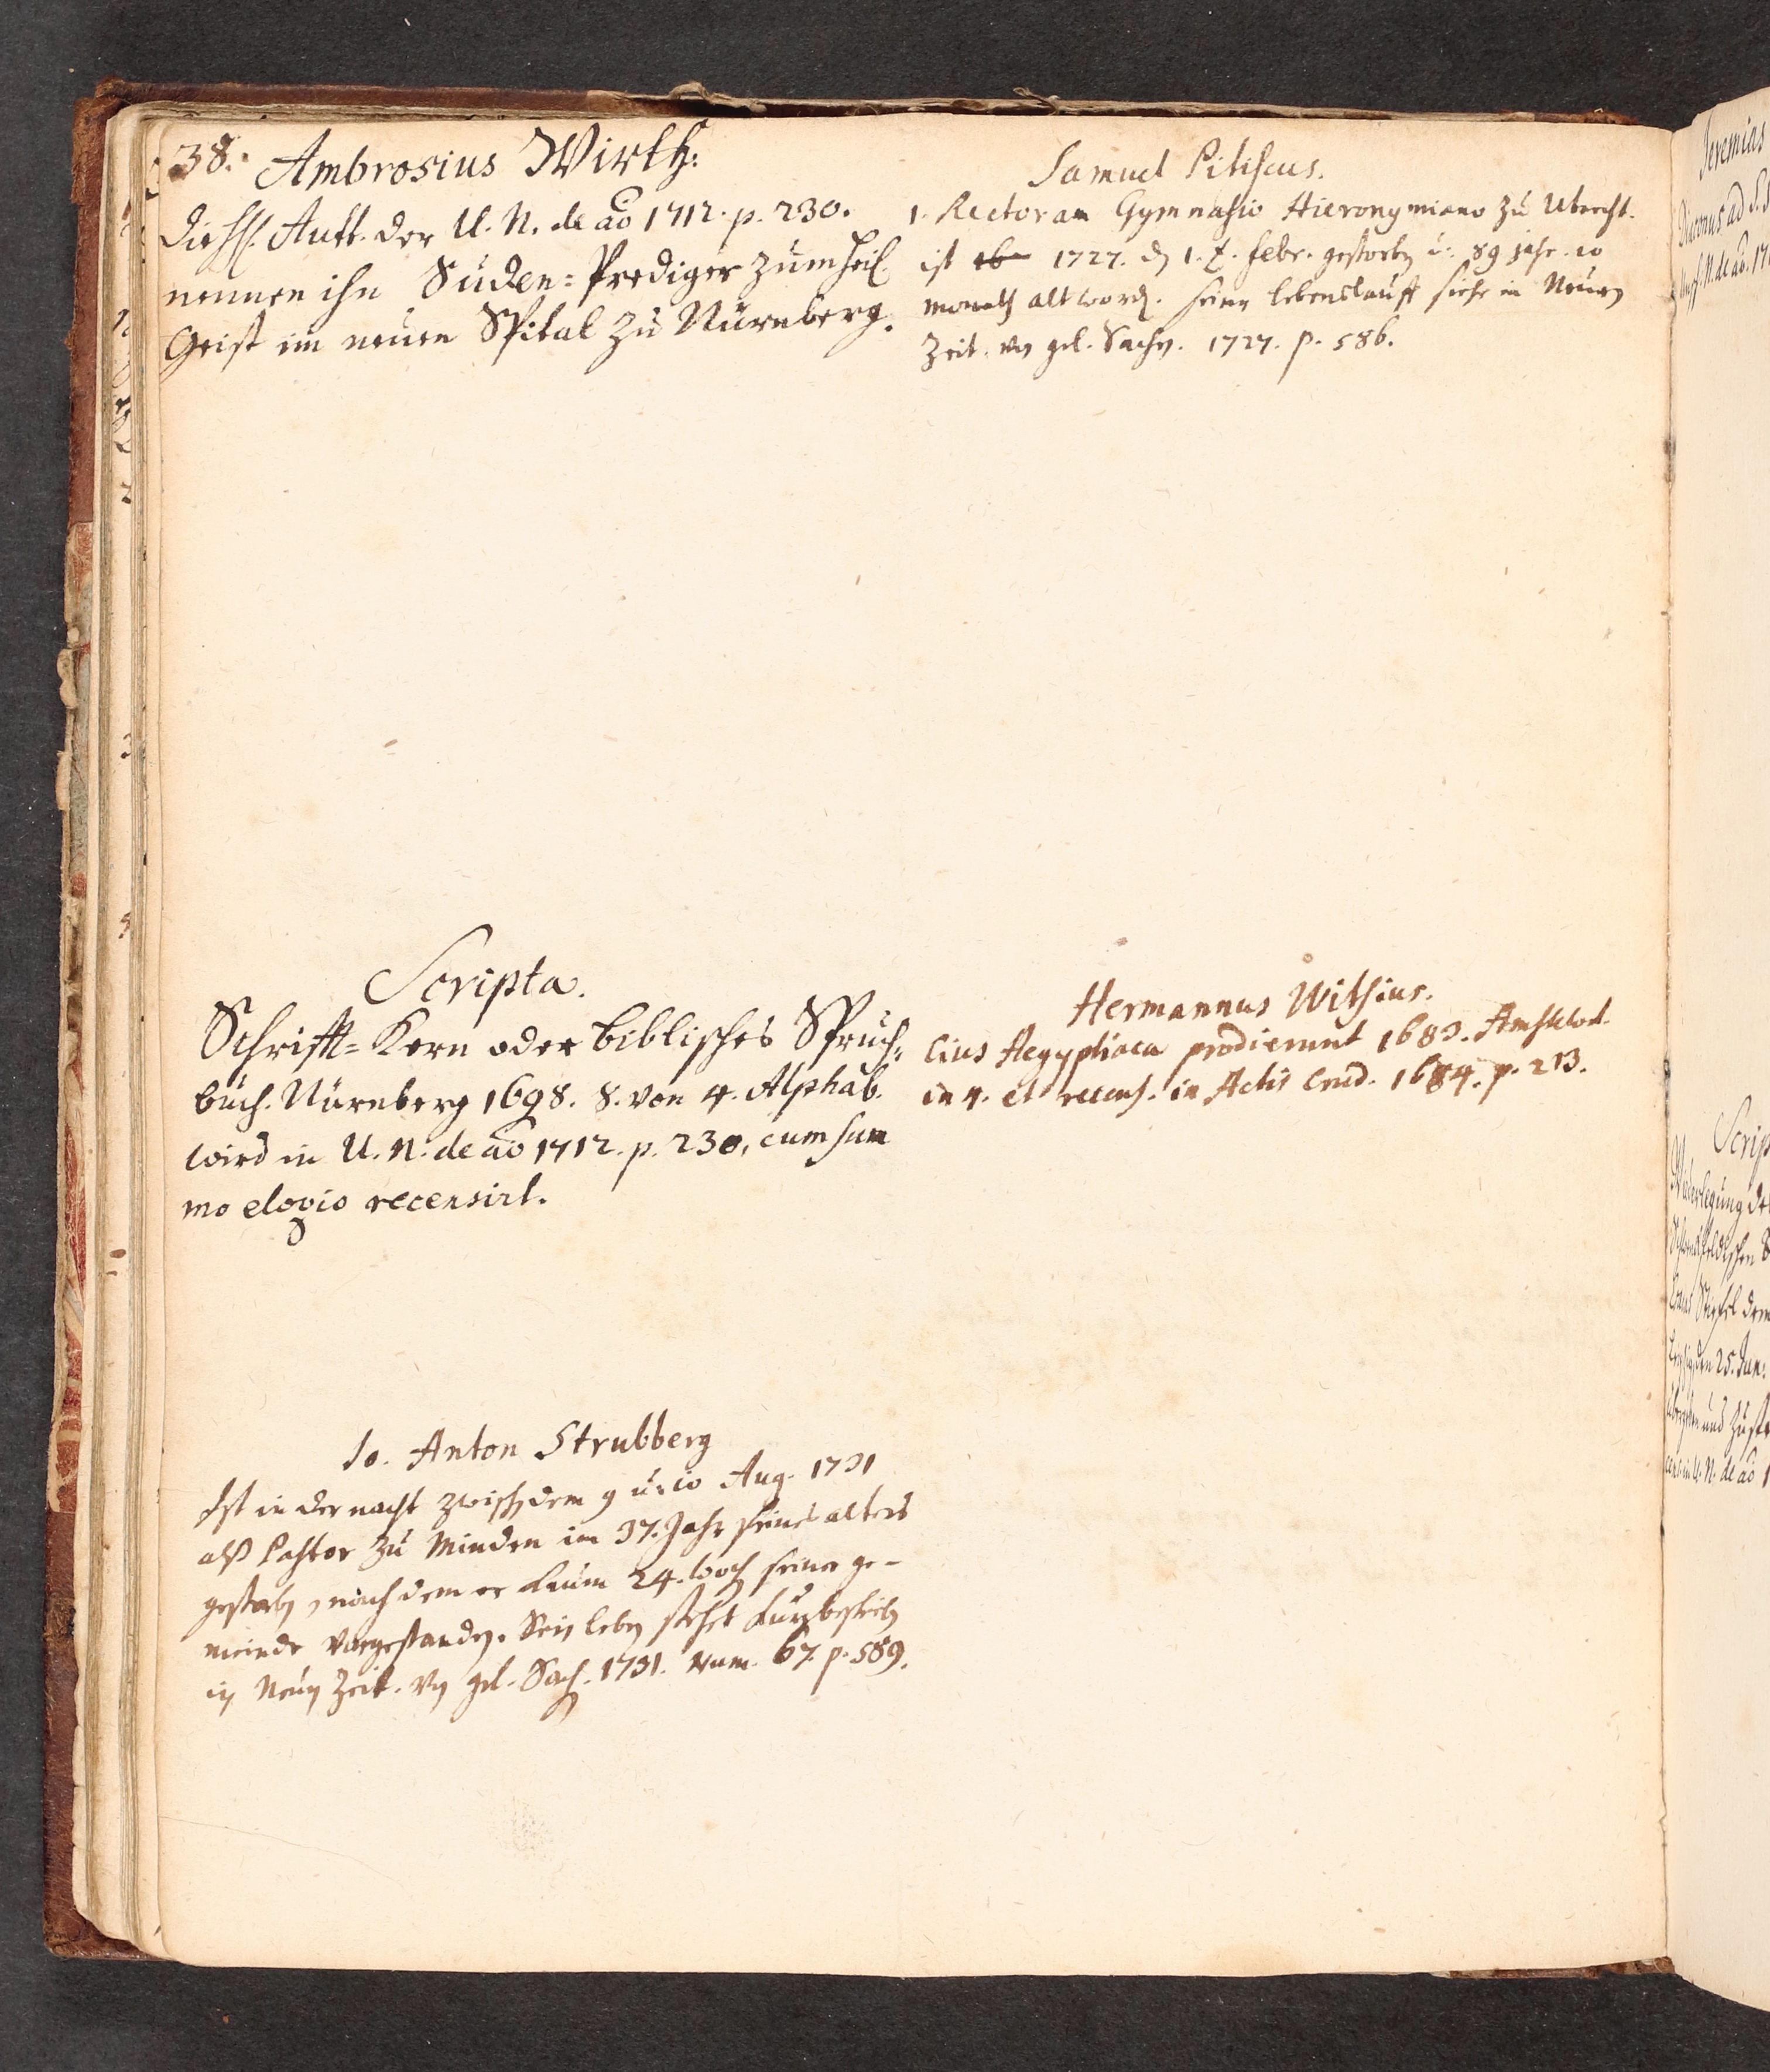 38. Ambrosius Wirth.
die HH. Autt. der U. N. de ao 1712. p. 230.
nennen ihn Suden=Prediger zum heil.
Geist im neuen Spital zu Nürnberg.
Scripta.
Schrifft=Kern oder biblisches Spruch=
buch. Nürnberg 1698. 8. von 4. Alphab.
wird in U. N. de ao 1712. p. 230. cum sum
mo elogio recensirt.
Jo. Anton Strubberg
Ist in der nacht zwisch dem 9 u. 10 Aug. 1731
alß Pastor zu Minden im 37. Jahr seines alters
gestorben, nach dem er kaum 24. woch seiner ge-
meinde vorgestanden. Sein leben stehet kurz beschrieben
in Neuen Zeit. von gel. Sach. 1731. Num. 67. p. 589.
Samuel Pitiscus.
1. Rector am Gymnasio Hieronymiano zu Utrecht.
ist 1727. d 1. febr. gestorben u. 89 jahr. 10
monath alt word. seinen lebenslauff siehe in Neuen
Zeit. von gel. Sachen. 1727. p. 586.
Hermannus Witsius.
Eius Aegyptiaca prodierunt 1683. Amstelod.
in 4. et recens. in Actis Erud. 1684. p. 213.
Jeremias
Scrip